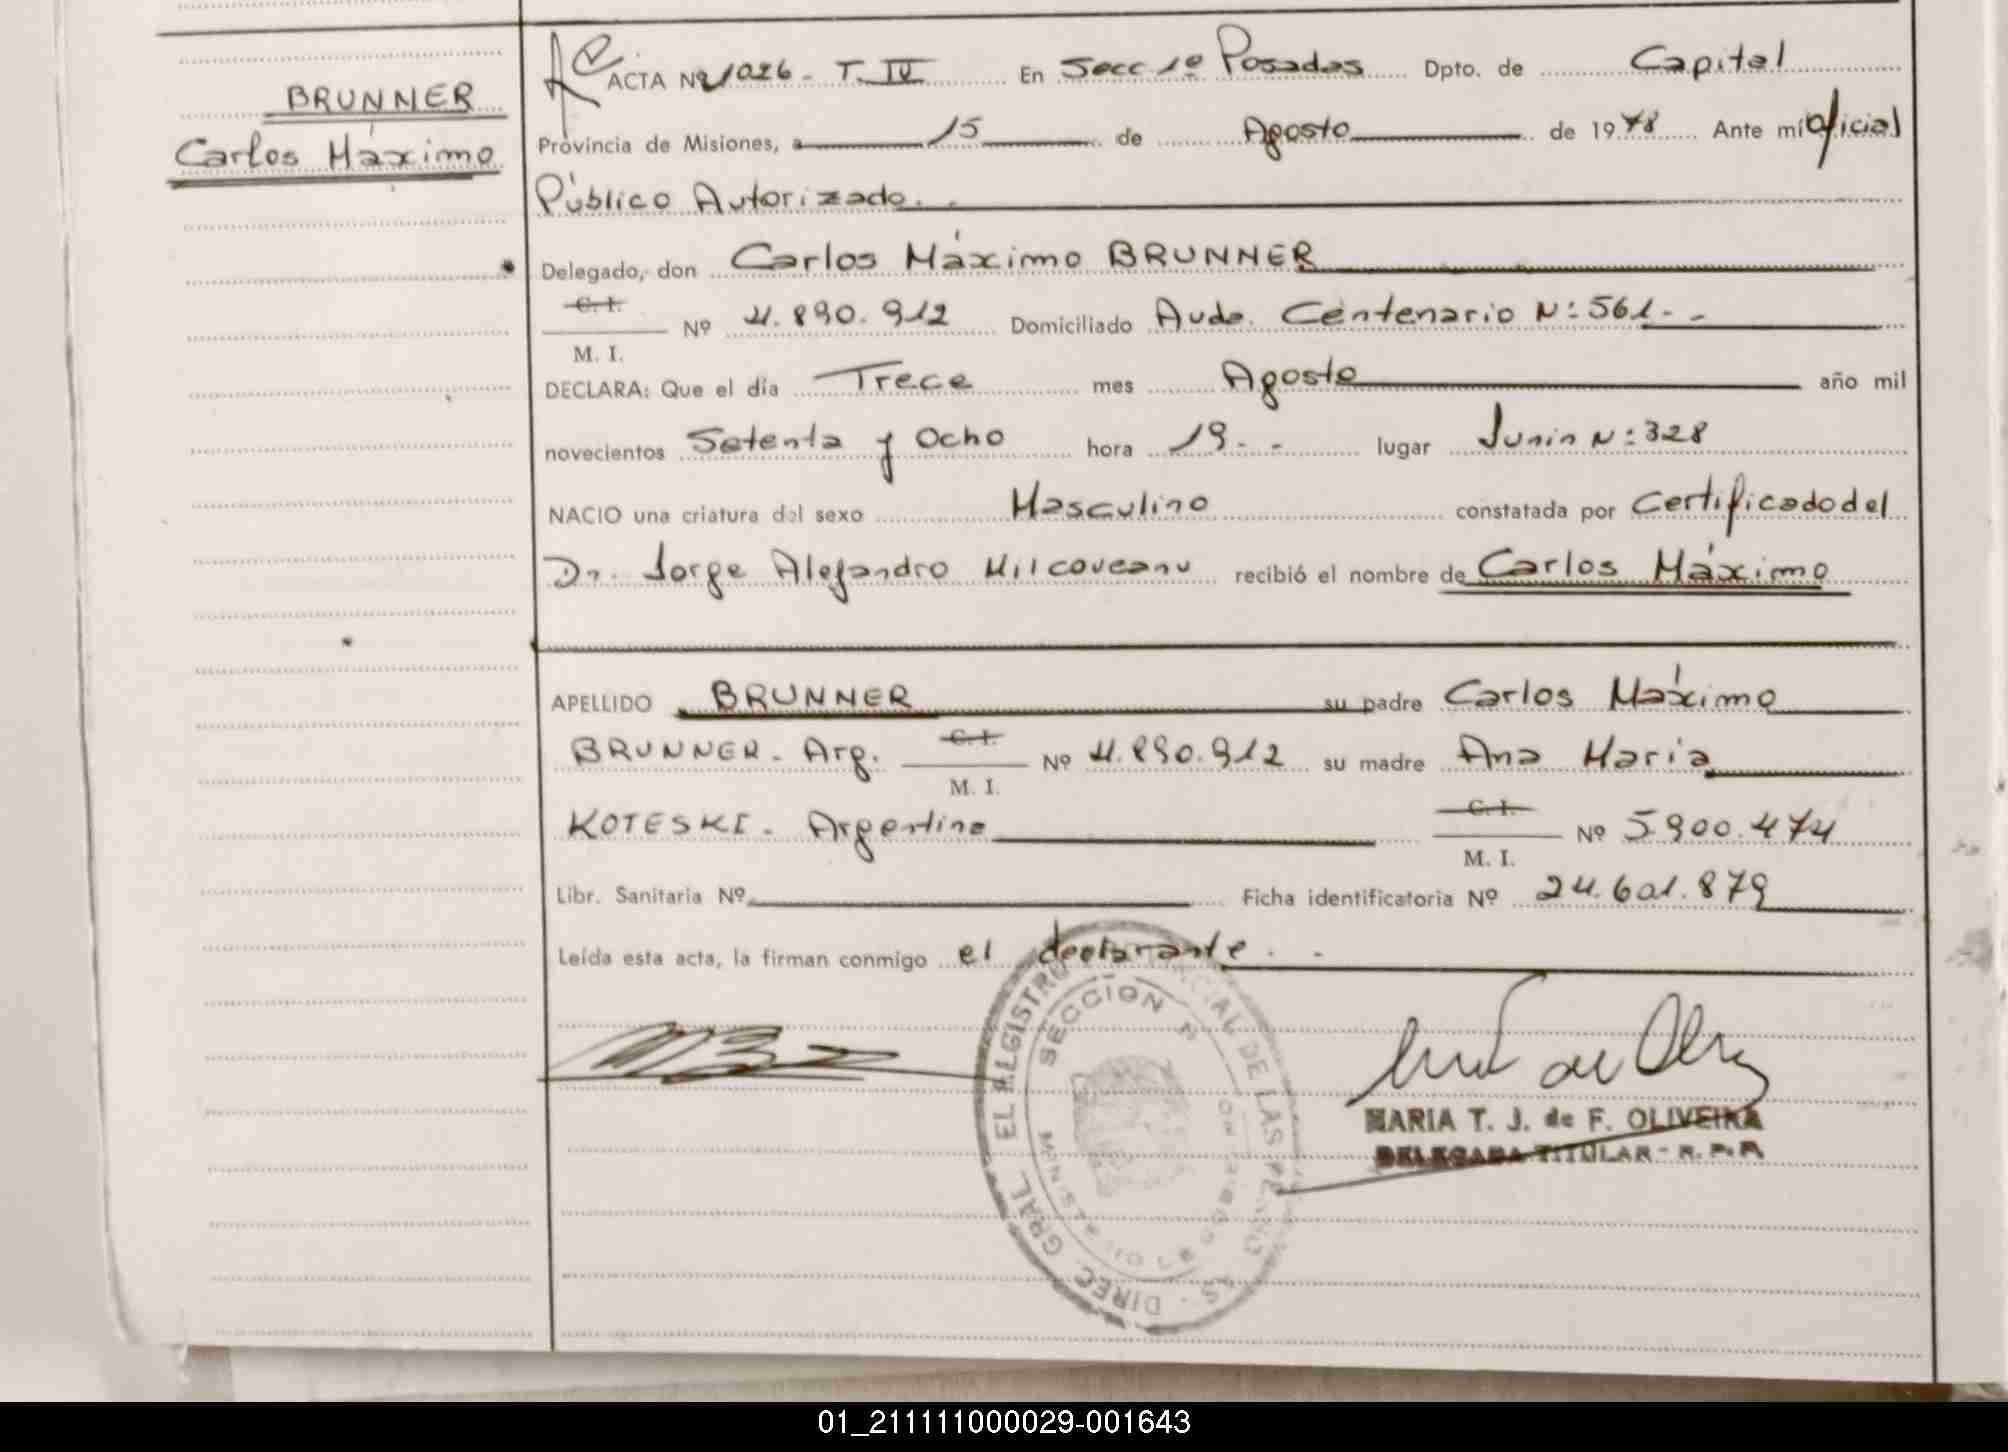 BRUNNER
Carlos Máximo
ACTA Nº 1026 - T. IV En Secc 1º Posadas Dpto. de Capital
Provincia de Misiones, a 15 de Agosto de 1978 Ante mí Oficial
Público Autorizado. -
Delegado, don Carlos Máximo BRUNNER
C. I.
M. I. Nº 4.890.912 Domiciliado Avda. Centenario Nº: 561. -
DECLARA: Que el día Trece mes Agosto año mil
novecientos Setenta y Ocho hora 19. - lugar Junin Nº: 328
NACIO una criatura del sexo Masculino constatada por Certificado del
Dr. Jorge Alejandro Milcoveanu recibió el nombre de Carlos Máximo
APELLIDO BRUNNER su padre Carlos Máximo
BRUNNER - Arg. C. I. M. I. Nº 4.890.912 su madre Ana Maria
KOTESKI - Argentina C. I. M. I. Nº 5.900.474
Libr. Sanitaria Nº Ficha identificatoria Nº 24.601.879
Leída esta acta, la firman conmigo el declarante. -
SECCION
DIREC. GRAL. DE LAS
MARIA T. J. de F. OLIVEIRA
DELEGADA TITULAR - R. P. P.
01_211111000029-001643